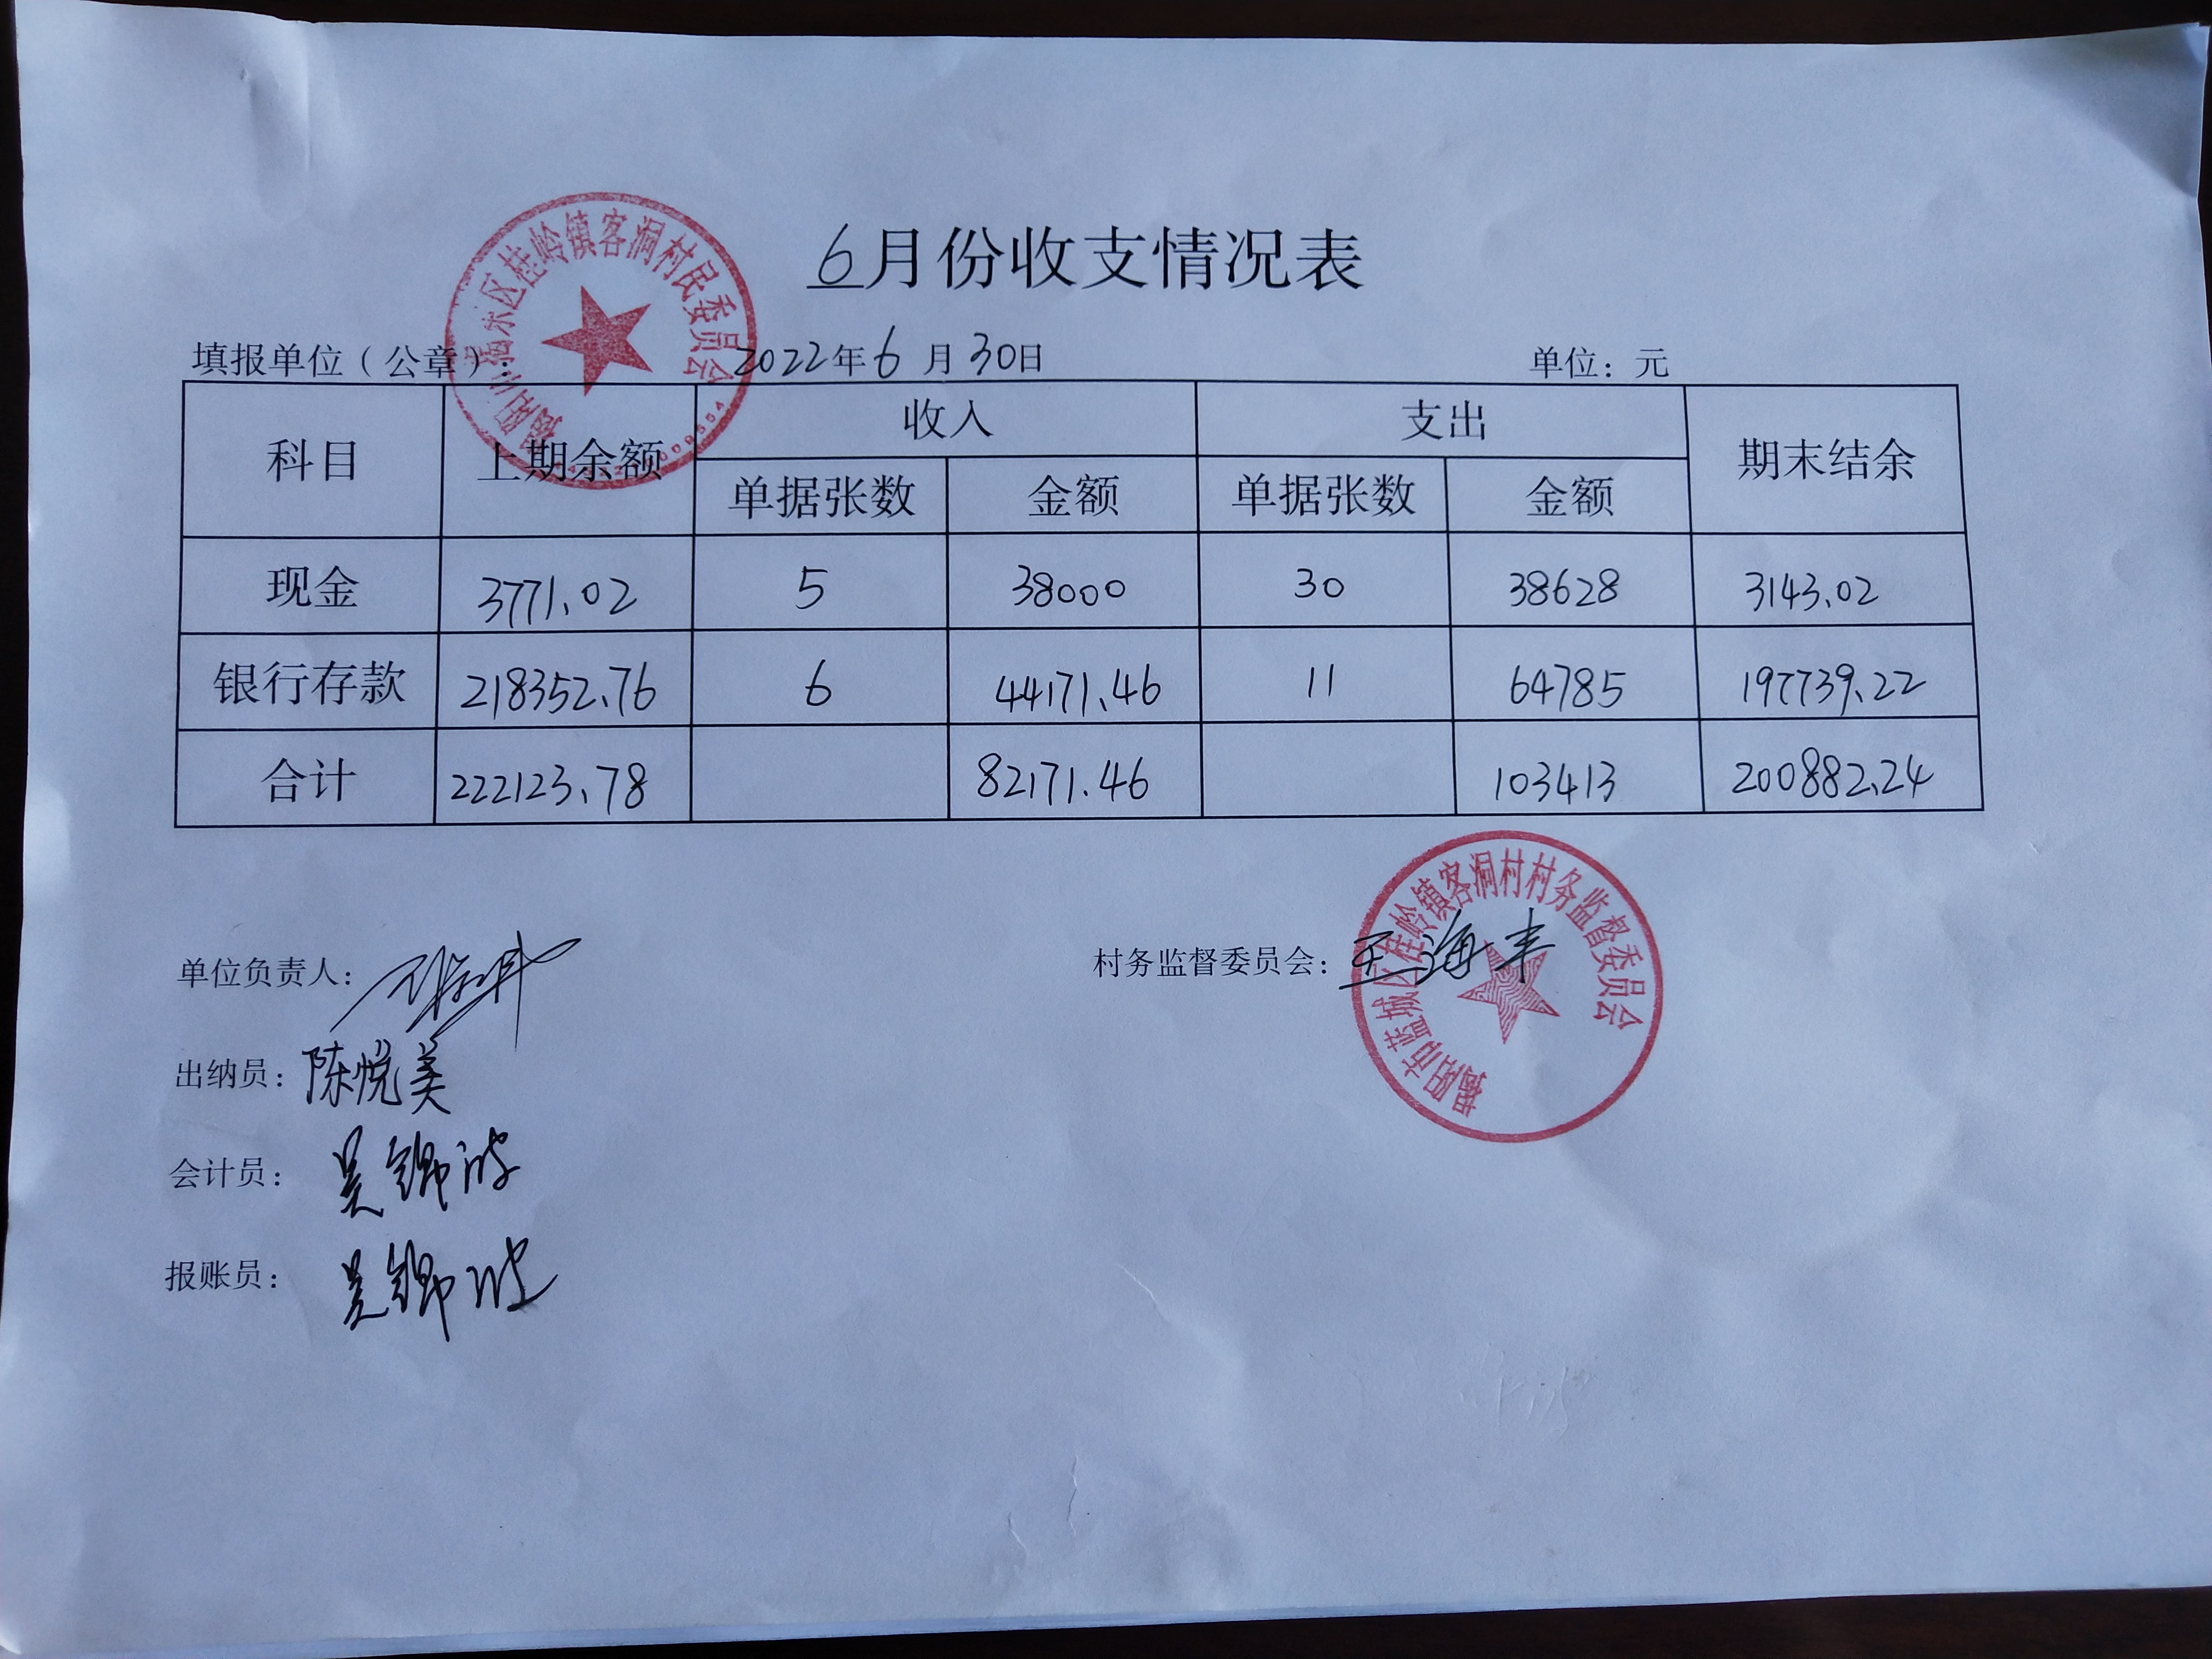 6月份收支情况表
填报单位（公章）： 2022年6月30日 单位：元
揭阳市揭东区桂岭镇客洞村民委员会
科目 上期余额 收入 支出 期末结余
单据张数 金额 单据张数 金额
现金 3771.02 5 38000 30 38628 3143.02
银行存款 218352.76 6 44171.46 11 64785 197739.22
合计 222123.78 82171.46 103413 200882.24
单位负责人： 村务监督委员会：王海丰
揭阳市蓝城区桂岭镇客洞村村务监督委员会
出纳员：陈悦美
会计员：吴锦波
报账员：吴锦波